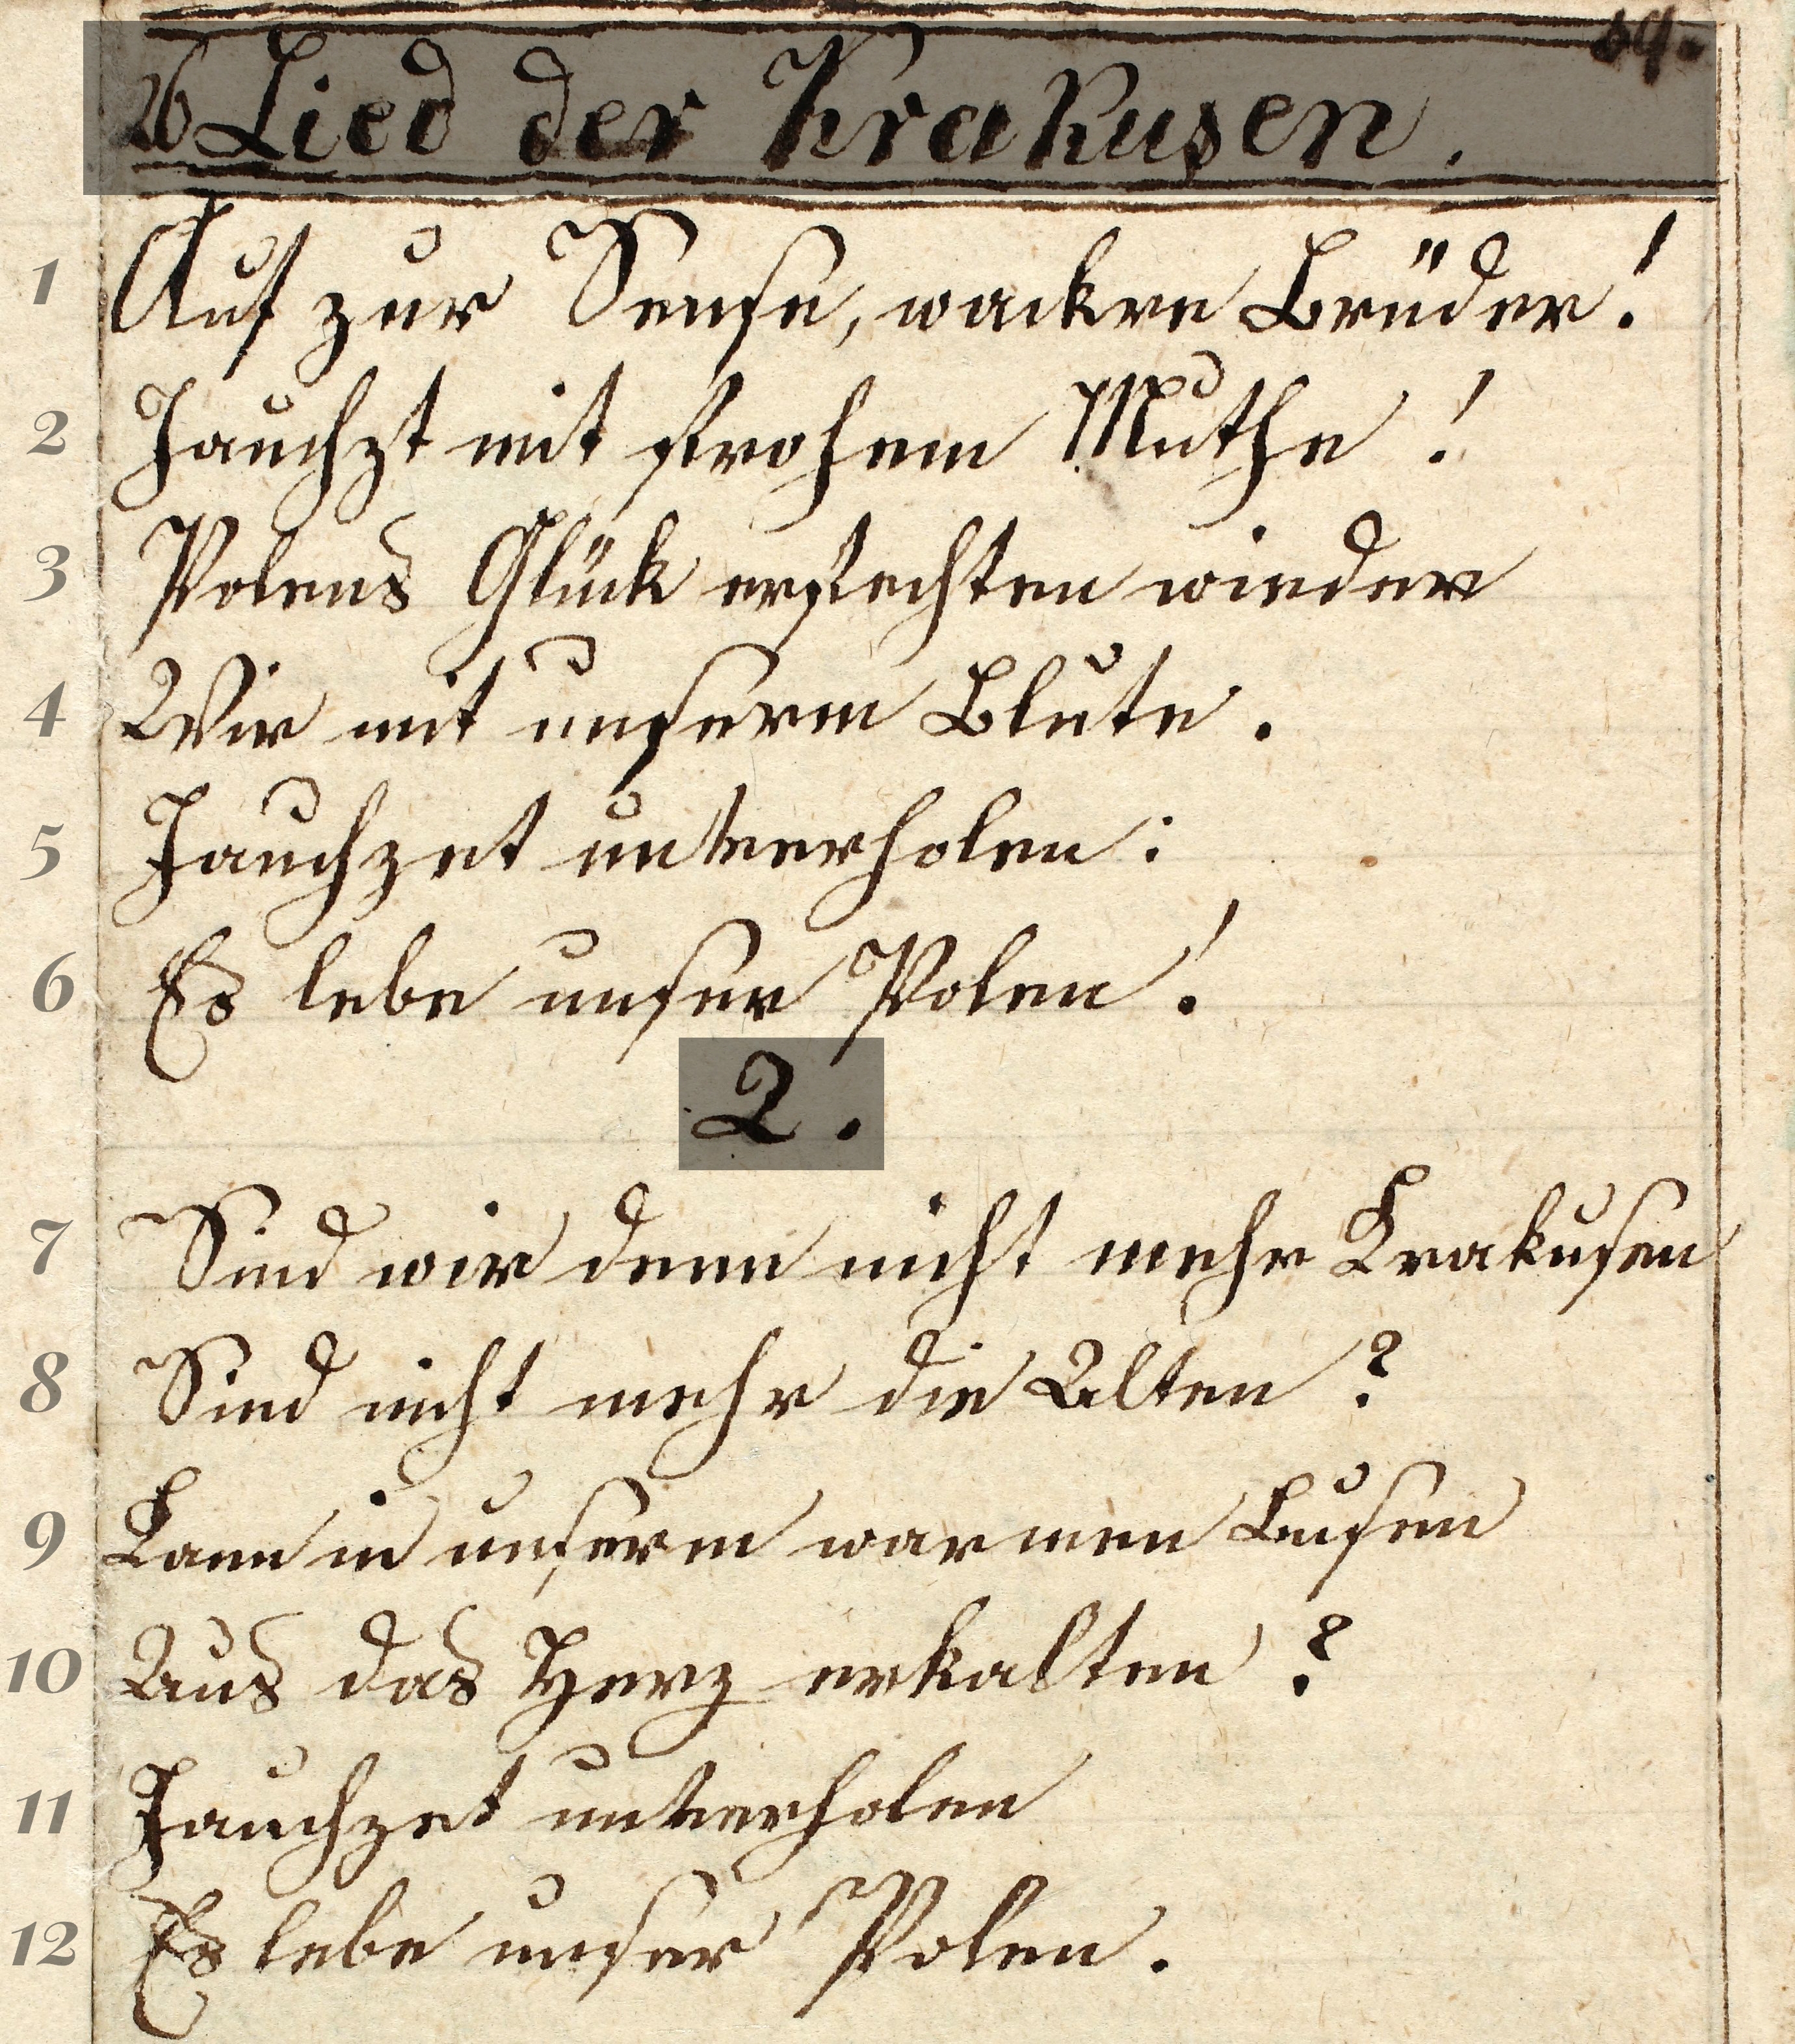 26 Lied der Krakusen. 59.
1 Auf zur Sense, wackre Brüder!
2 Jauchzt mit frohem Muthe!
3 Polens Glück erfechten wieder
4 Wir mit unserm Blute.
5 Jauchzet unverholen:
6 Es lebe unser Polen!
2.
7 Sind wir denn nicht mehr Krakusen
8 Sind nicht mehr die Alten?
9 Kann in unserm warmen Busen
10 Uns das Herz erkalten?
11 Jauchzet unverholen
12 Es lebe unser Polen.